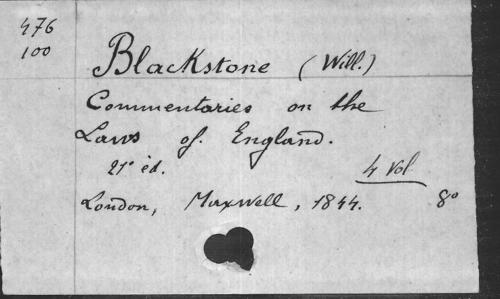 476
100
Blackstone (Will.)
Commentaries on the
Laws of. England.
21ᵉ éd.
4 Vol
London, Maxwell, 1844. 8°